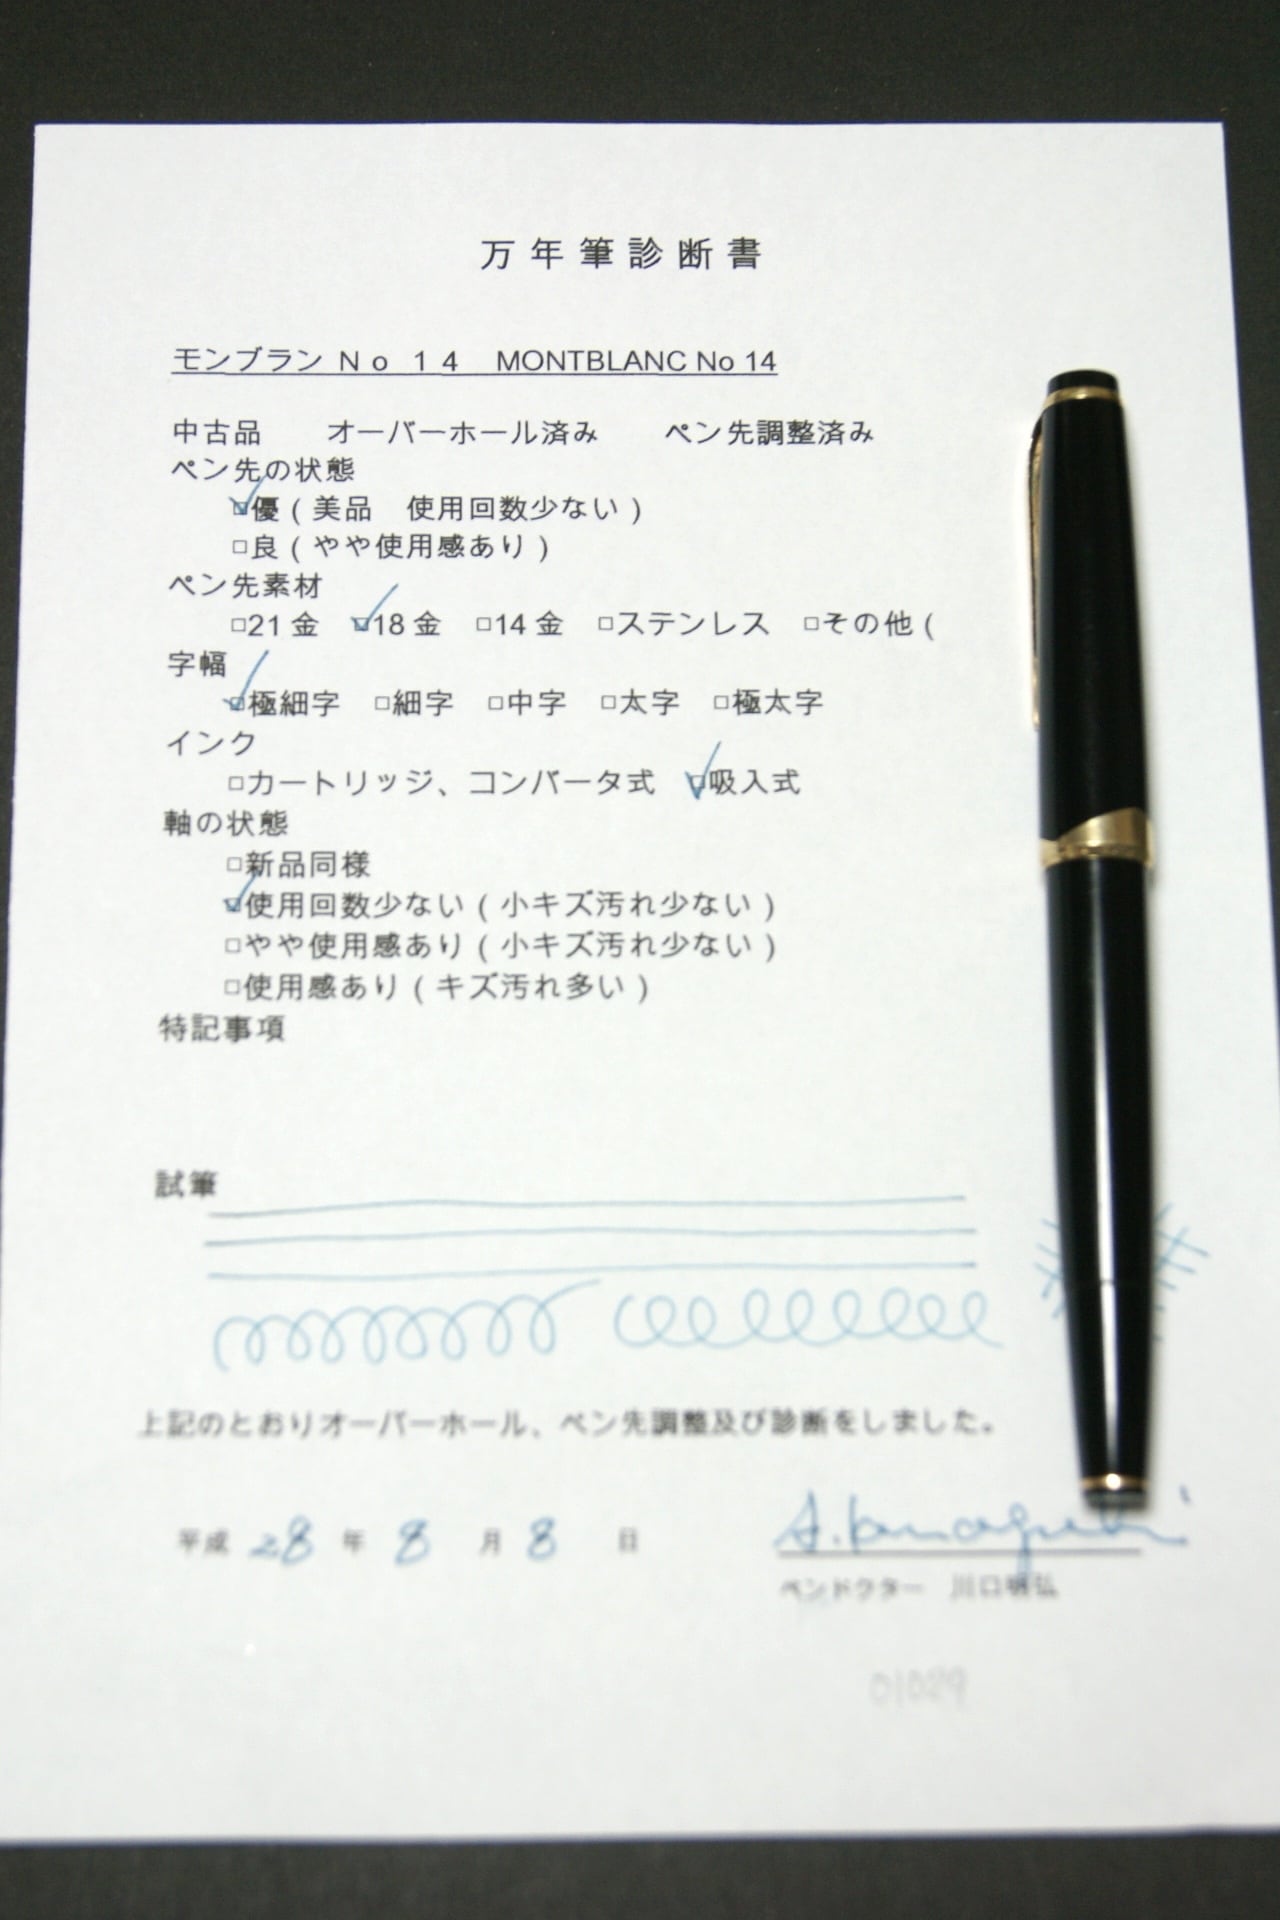 万年筆診断書
モンブラン No 14 MONTBLANC No 14
中古品 オーバーホール済み ペン先調整済み
ペン先の状態
☑優(美品 使用回数少ない)
□良(やや使用感あり)
ペン先素材
□21金 ☑18金 □14金 □ステンレス □その他(
字幅
☑極細字 □細字 □中字 □太字 □極太字
インク
□カートリッジ、コンバータ式 ☑吸入式
軸の状態
□新品同様
☑使用回数少ない(小キズ汚れ少ない)
□やや使用感あり(小キズ汚れ少ない)
□使用感あり(キズ汚れ多い)
特記事項
試筆
上記のとおりオーバーホール、ペン先調整及び診断をしました。
平成 28 年 8 月 8 日
ペンドクター 川口明弘
01029